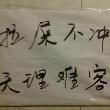 拉屎不冲
天理难容